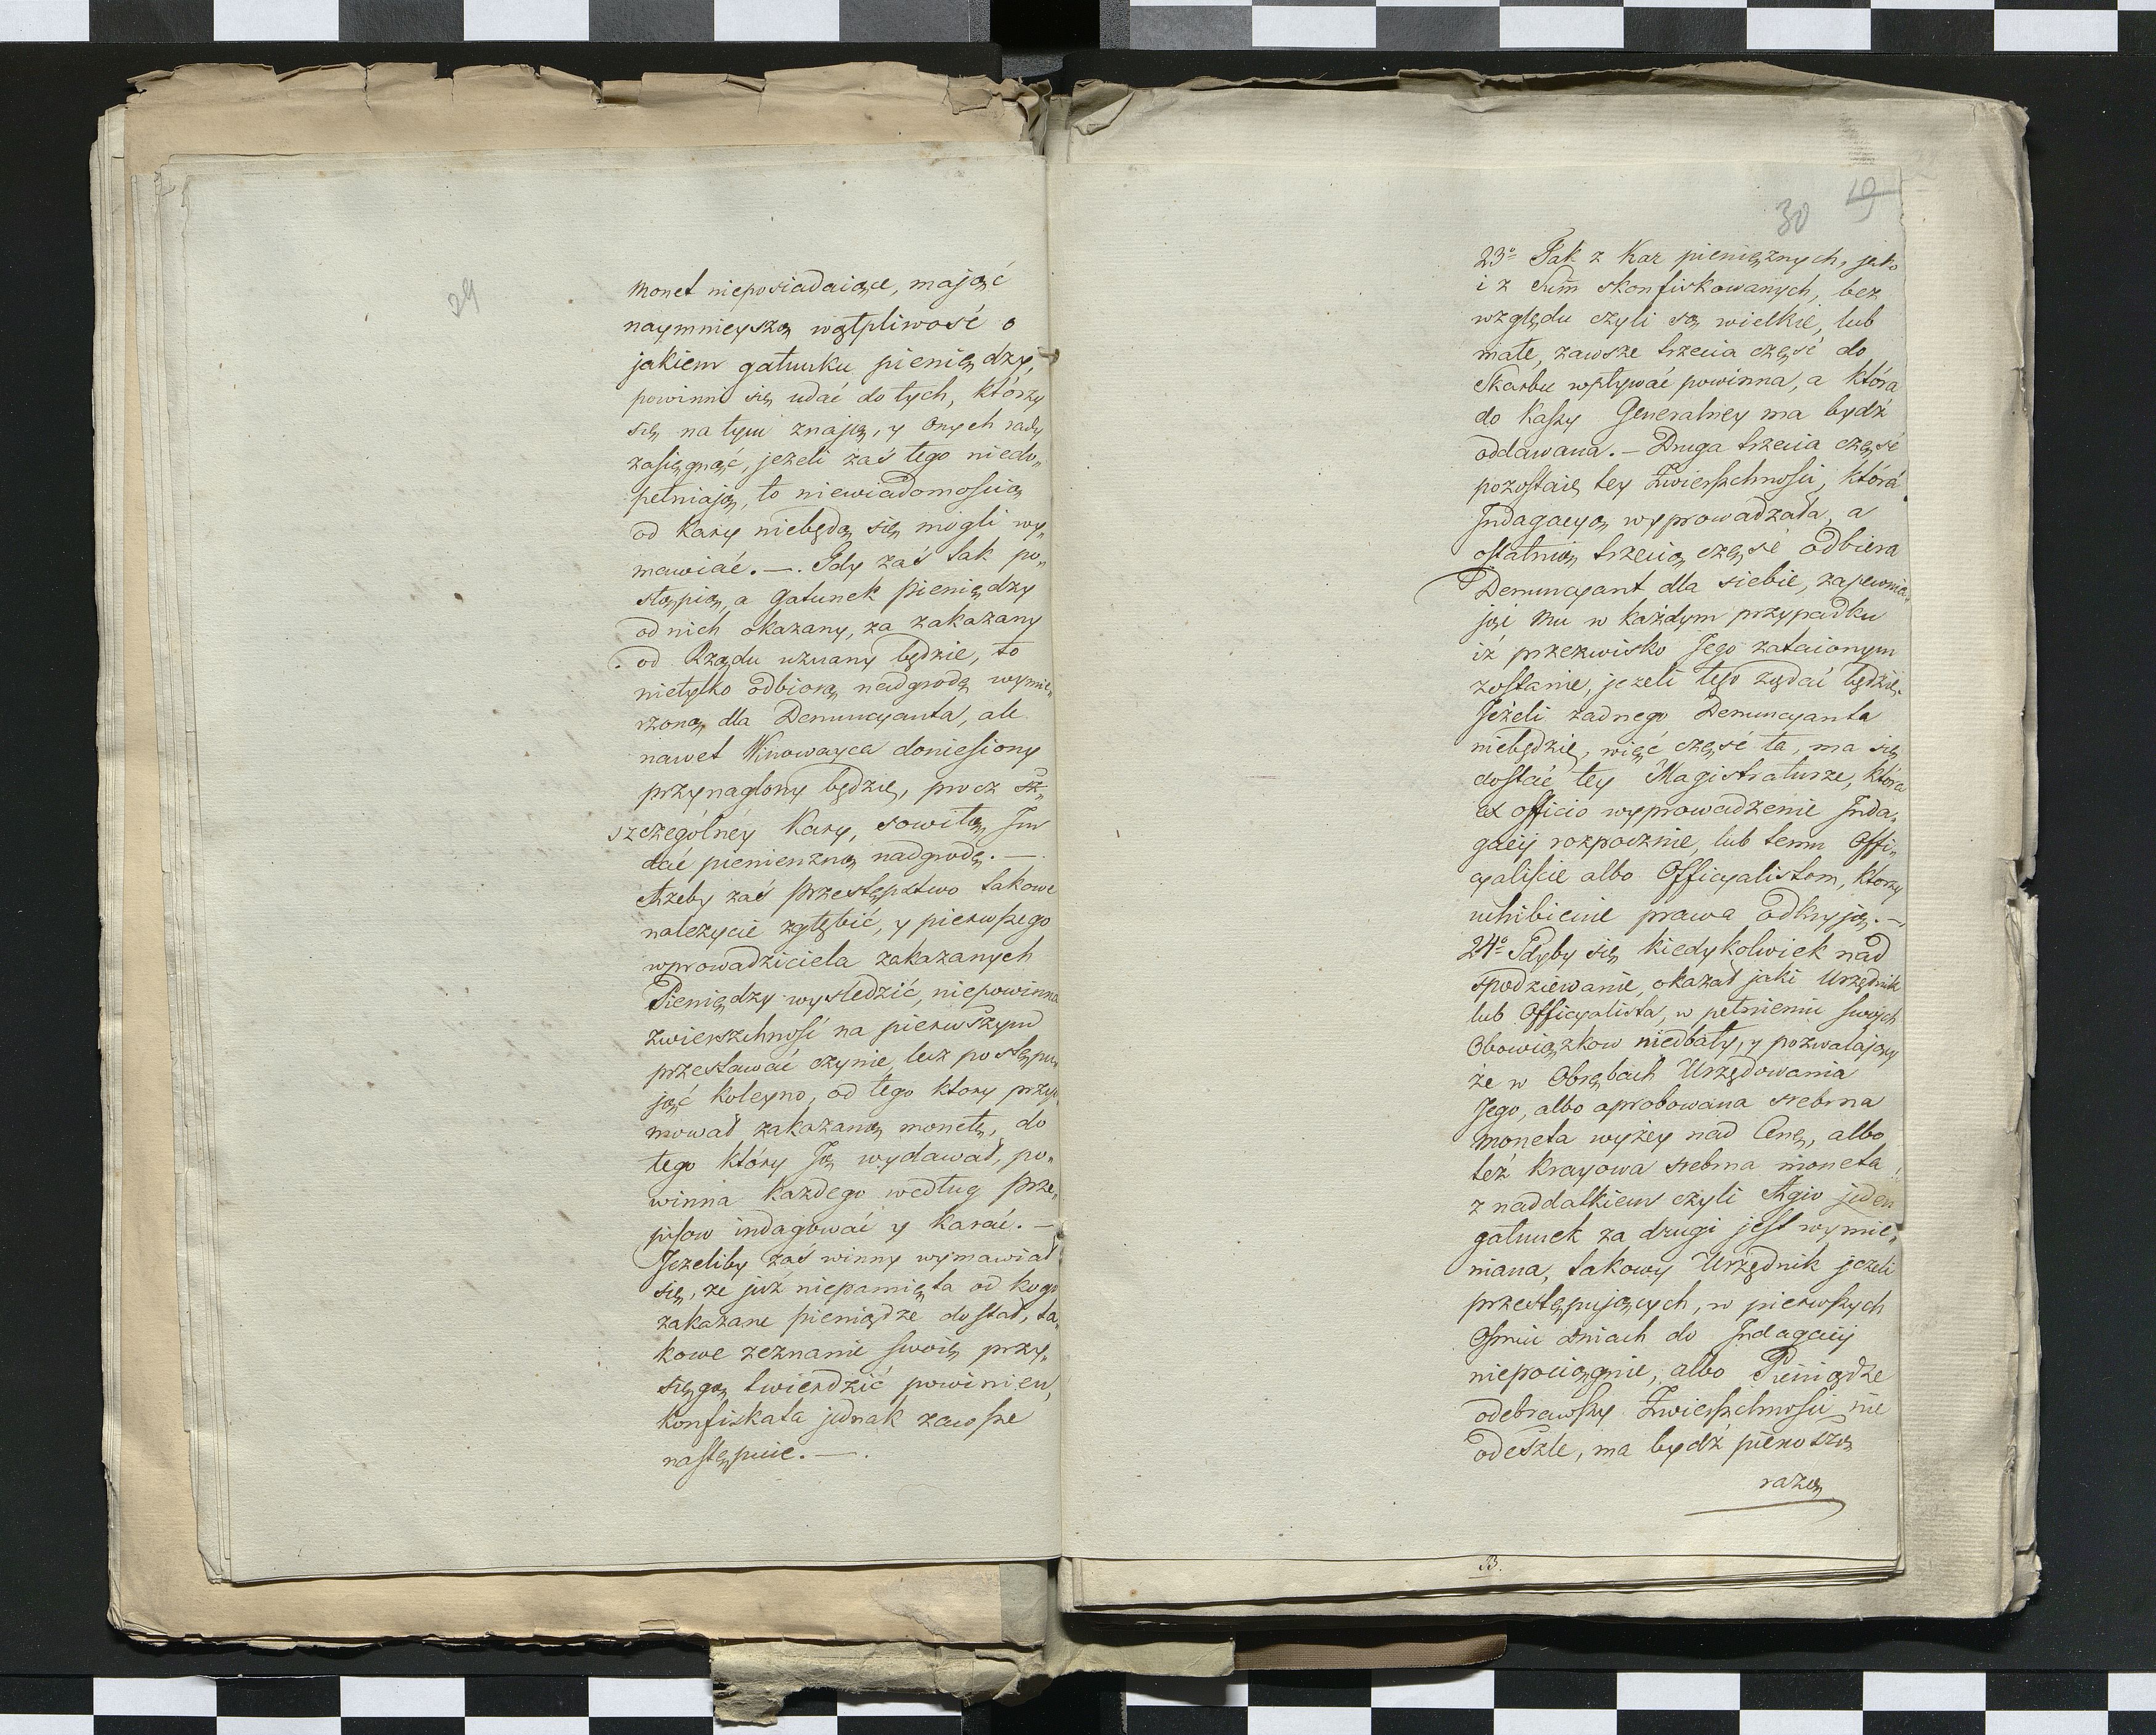 29
monet nieposiadaiące, mająć
naymnieyszą wątpliwość o
jakiem gatunku pieniędzy,
powinni się udać do tych, którzy
się na tym znają, y onych rady
zasięgnąć, jeżeli zaś tego niedo„
pełniają, to niewiadomością
od kary niebędą się mógli wy„
mawiać. —. Gdy zaś tak po„
stąpią, a gatunek pieniędzy
od nich okazany, za zakazany
od Rządu uznany będzie, to
nietylko odbiorą nadgrodę wymie„
rzoną dla Denuncyanta, ale
nawet Winowayca doniesiony
przynaglony będzie, procz sz„
szczególnéy kary, sowitą Im
dać pienienzną nadgrodę. —
Ażeby zaś przestępstwo takowe
należycie zgłębić, y pierwszego
wprowadziciela zakazanych
Pieniędzy wysledzić, niepowinna
zwierzchność na pierwszym
przestawać czynie, lecz postępu
jąć koleyno, od tego ktory przyi
mował zakazaną monetę, do
tego który Ją wydawał, po„
winna każdego według prze„
pisow indagować y karać. —
Jeżeliby zaś winny wymawiał
się, że już niepamięta od kogo
zakazane pieniądze dostał, ta„
kowe zeznanie swoię przy„
sięgą twierdzić powinien,
konfiskata jednak zawsze
następuie. —.
30 19
23º Tak z Kar pieniężnych, jako
i z Sum̄ skonfiskowanych, bez
względu czyli są wielkie, lub
małe, zawsze trzecia część do
Skarbu wpływać powinna, a która
do Kassy Generalney ma bydź
oddawana. — Druga trzecia część
pozostaie tey Zwierzchności, która
Indagacyą wyprowadzała, a
ostatnią trzecią część odbiera
Denuncyant dla siebie, zapewnia„
jąć mu w każdym przypadku
iż przezwisko Jego zataionym
zostanie, jeżeli tego żądać będzie.
Jeżeli żadnego Denuncyanta
niebędzie, więć część ta, ma się
dostać tey Magistraturze, która
ex officio wyprowadzenie Inda„
gacij rozpocznie, lub temu Offi„
cyaliście albo Officyalistom, ktorzy
uchibienie prawa odkryją. —.
24º Gdyby się kiedykolwiek nad
spodziewanie, okazał jaki Urzędnik
lub Officyalista, w pełnieniu swoich
Obowiązkow niedbały, y pozwalający
że w Obrębach Urzędowania
Jego, albo aprobowana srebrna
moneta wyżey nad Cenę, albo
też krayowa srebrna moneta
z naddatkiem czyli Agio jeden
gatunek za drugi jest wymie„
niana, takowy Urzędnik jeżeli
przestępujących, w pierwszych
Osmiu dniach do Indagacij
niepociągnie, albo Pieniądze
odebrawszy Zwierzchności nie
odeszle, ma bydź pierwszą
razą
B.